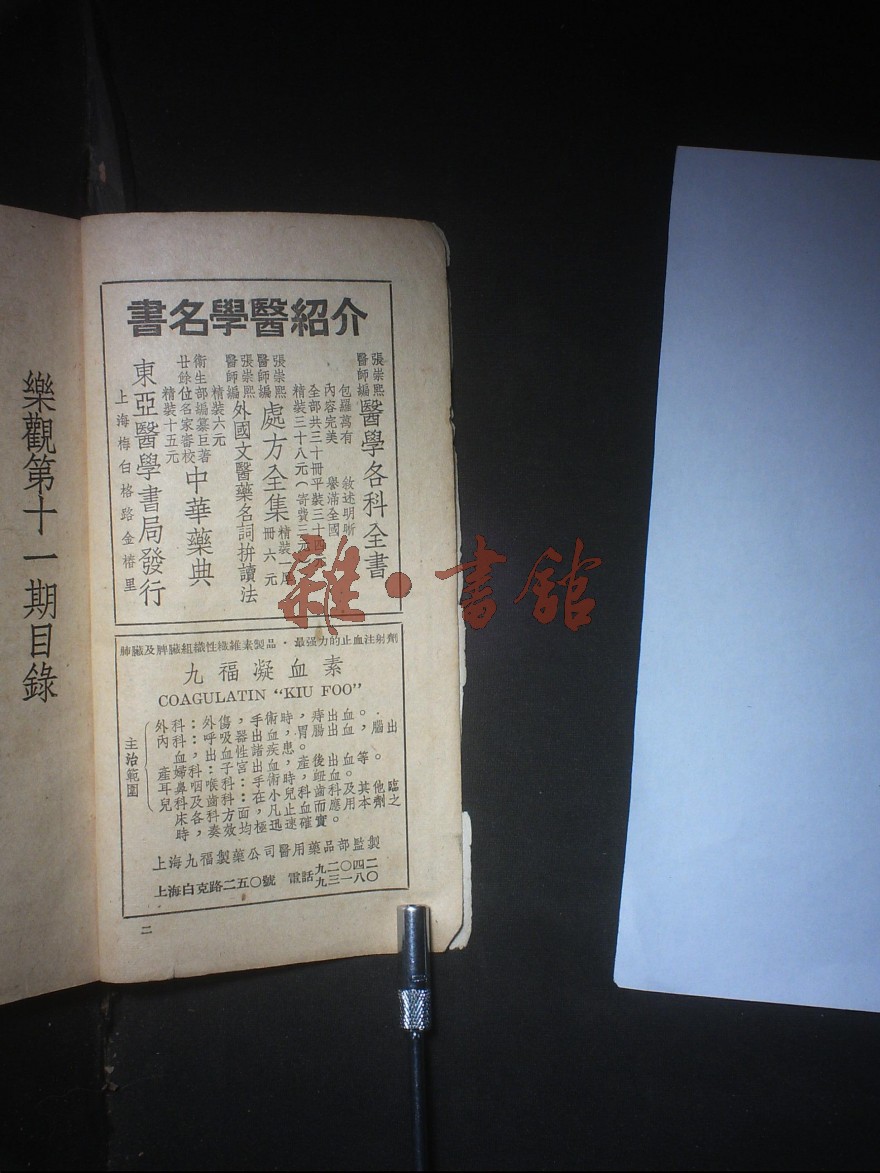 樂觀第十一期目錄
書名學醫紹介
張崇熙
醫師編
醫學各科全書
包羅萬有 敘述明晰
內容完美 譽滿全國
全部共三十冊平裝三十四
精裝三十八元(寄費三元
張崇熙
醫師編
處方全集
精裝一厚
冊六元
張崇熙
醫師編
外國文醫藥名詞拼讀法
精裝六元
衛生部編纂巨著
廿餘位名家審校
中華藥典
精裝十五元
東亞醫學書局發行
上海梅白格路金榰里
肺臟及脾臟組織性纖維素製品·最强力的止血注射劑
九福凝血素
COAGULATIN “KIU FOO”
主治範圍
外科:外傷,手術時,痔出血。
內科:呼吸器出血,胃腸出血,腦出
血,出血性諸疾患。
產婦科:子宮出血,產後出血等。
耳鼻咽喉科:手術時,衄血。
兒科及齒科:在小兒科齒科及其他臨
床各科方面,凡止血而應用本劑之
時,奏效均極迅速確實。
上海九福製藥公司醫用藥品部監製
上海白克路二五〇號 電話
九二〇四二
九三一八〇
二
雜·書館